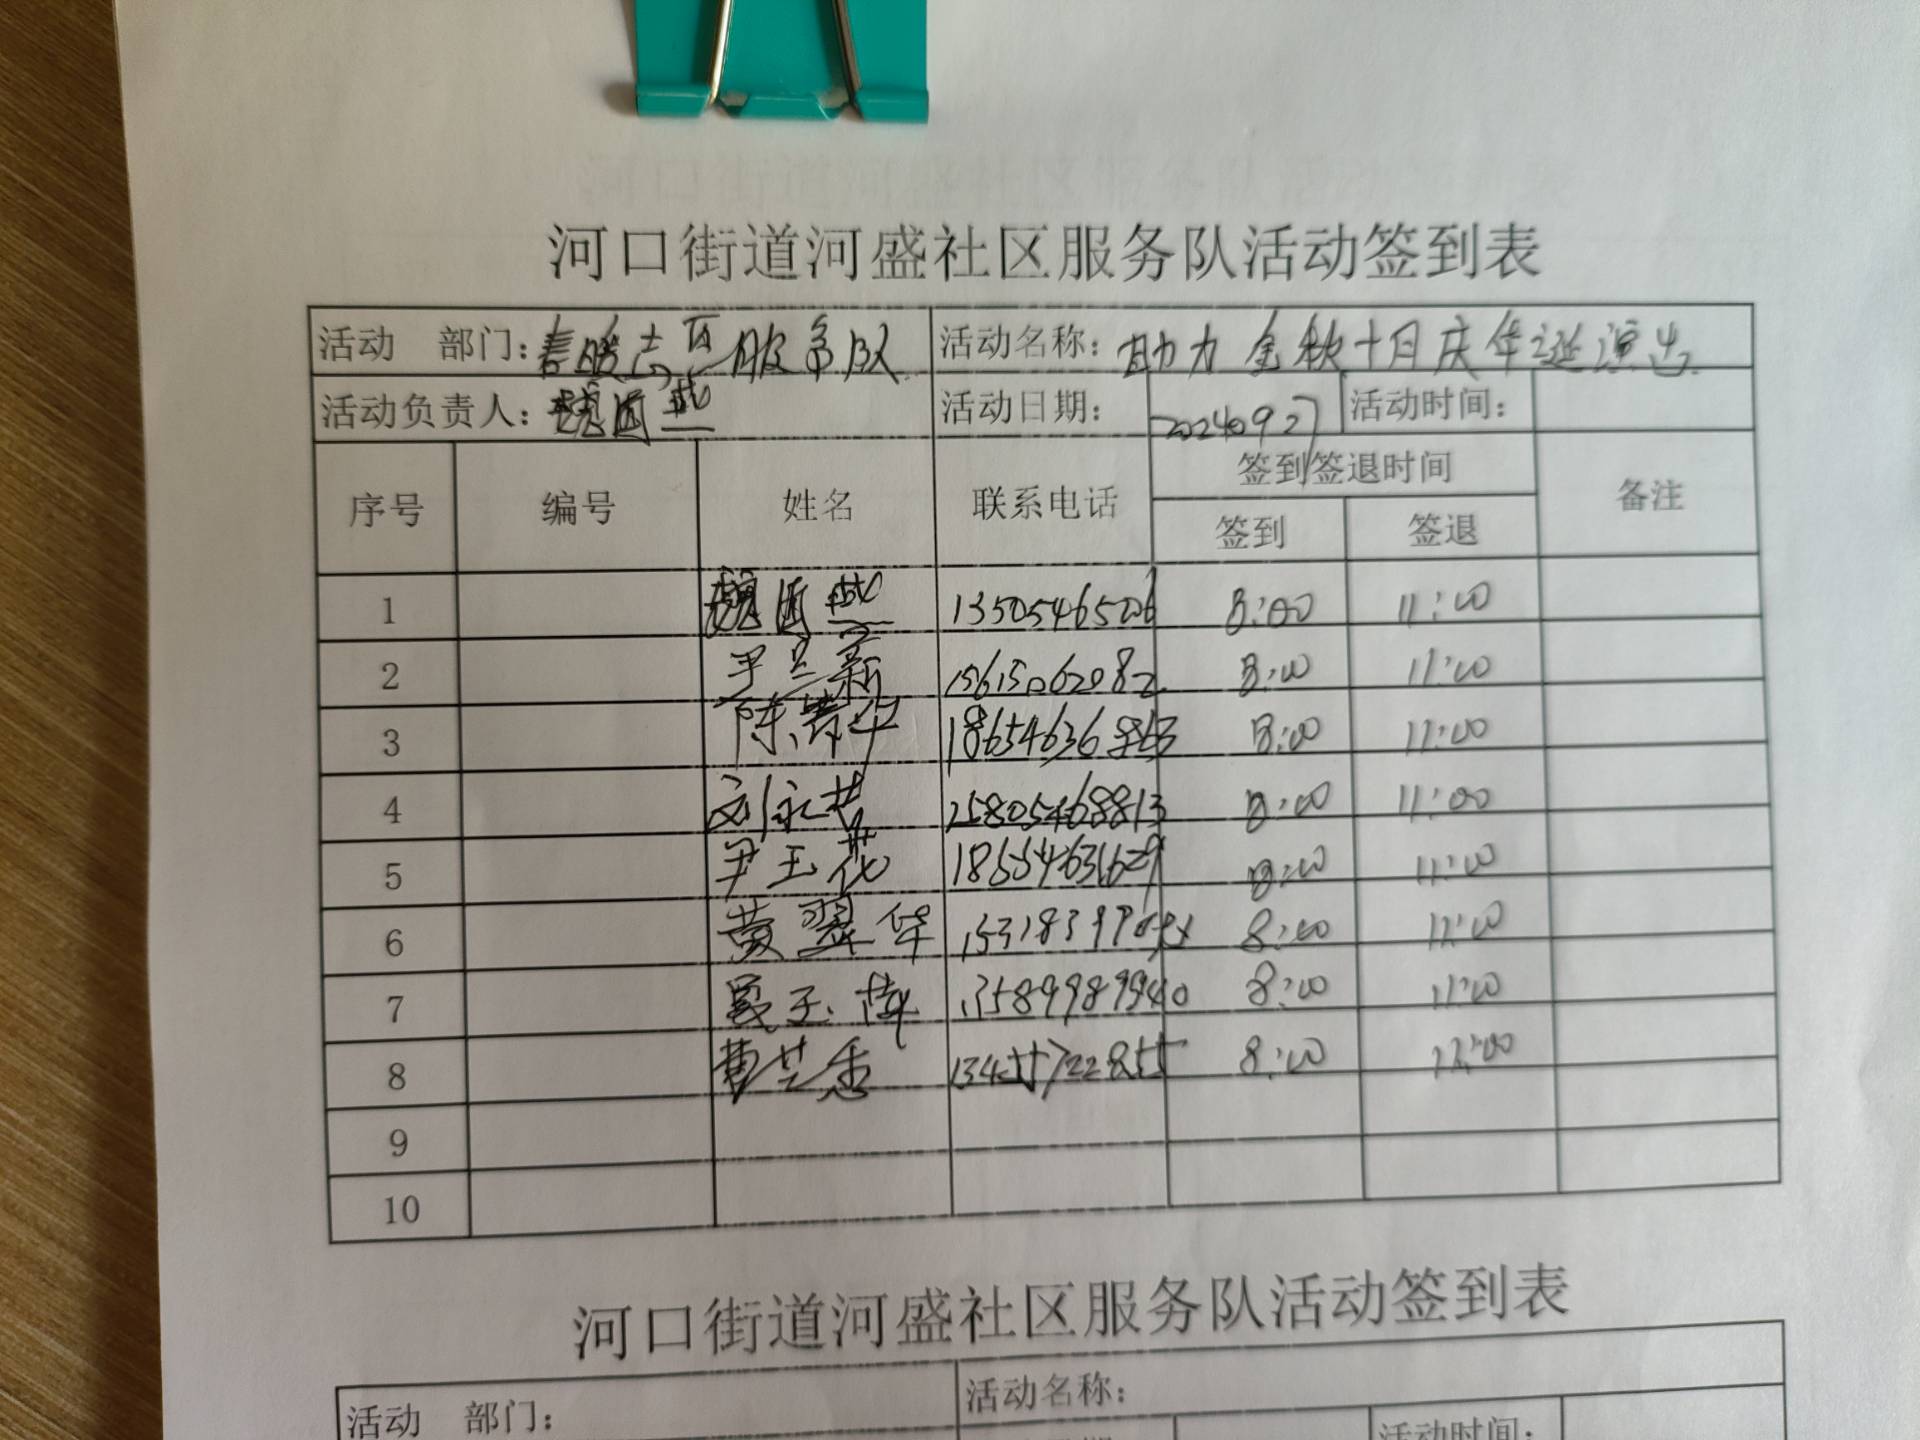 河口街道河盛社区服务队活动签到表
活动 部门：春暖志区服务队 活动名称：助力金秋十月庆华诞演出
活动负责人： 活动日期：20240927 活动时间：
序号 编号 姓名 联系电话 签到签退时间 备注
签到 签退
1 13505465206 8:00 11:00
2 尹兰新 15615062082 8:00 11:00
3 18654636863 8:00 11:00
4 刘永 25805468813 8:00 11:00
5 尹玉花 8:00 11:00
6 黄翠华 8:00 11:00
7 13589989940 8:00 11:00
8 曹兰香 8:00 11:00
9
10
河口街道河盛社区服务队活动签到表
活动 部门： 活动名称：
活动时间：